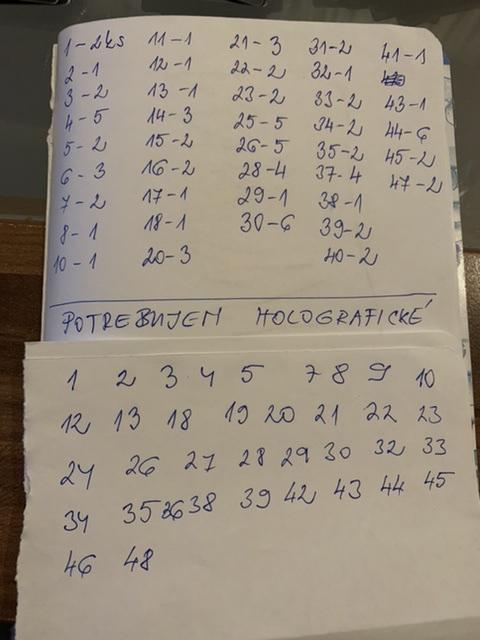 1-2ks 11-1 21-3 31-2 41-1
2-1 12-1 22-2 32-1
3-2 13-1 23-2 33-2 43-1
4-5 14-3 25-5 34-2 44-6
5-2 15-2 26-5 35-2 45-2
6-3 16-2 28-4 37-4 47-2
7-2 17-1 29-1 38-1
8-1 18-1 30-6 39-2
10-1 20-3 40-2
POTREBUJEM HOLOGRAFICKÉ
1 2 3 4 5 7 8 9 10
12 13 18 19 20 21 22 23
24 26 27 28 29 30 32 33
34 35 36 38 39 42 43 44 45
46 48